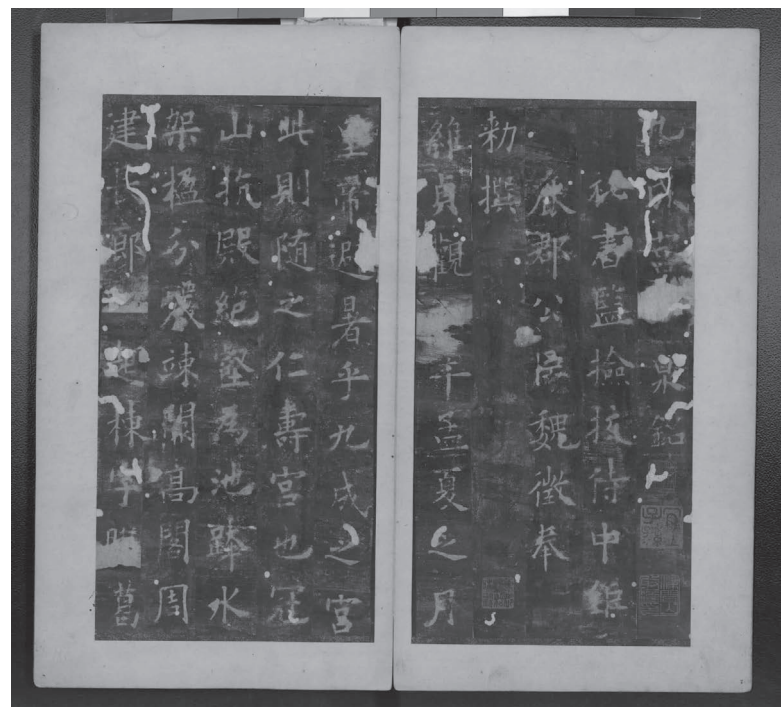 九成宮 泉銘
秘書監撿挍侍中鉅
鹿郡公臣魏徵奉
勑撰
維貞觀 年孟夏之月
皇帝避暑乎九成之宮
此則隨之仁壽宮也冠
山抗殿絕壑為池跨水
架楹分巖竦闕高閣周
建長廊四起棟宇膠葛